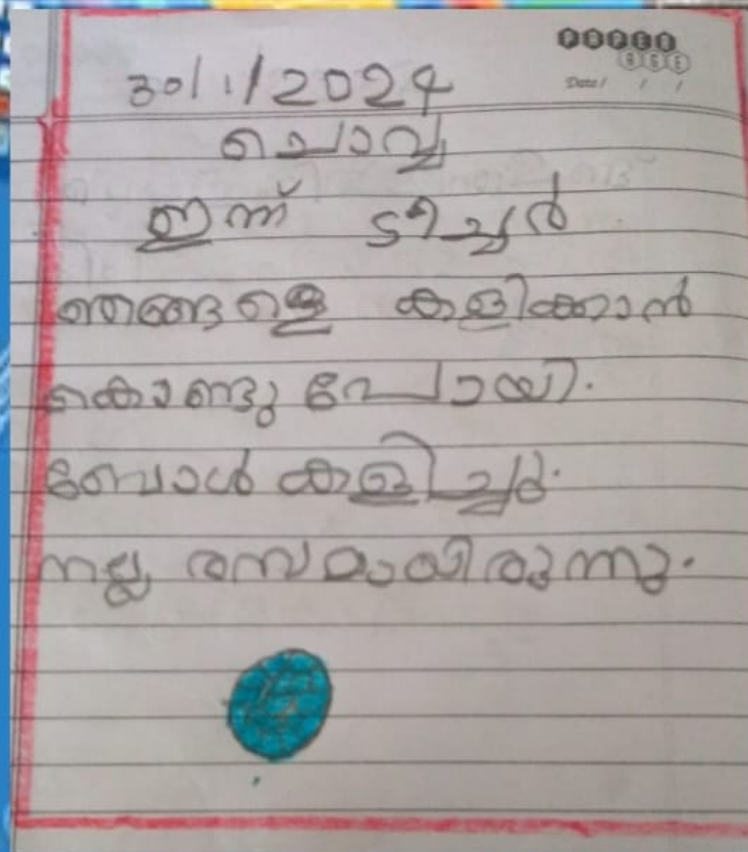 PAPER
BEE
Date / / /
30/1/2024
ചൊവ്വ
ഇന്ന് ടീച്ചർ
ഞങ്ങളെ കളിക്കാൻ
കൊണ്ടുപോയി.
ബോൾ കളിച്ചു.
നല്ല രസമായിരുന്നു.